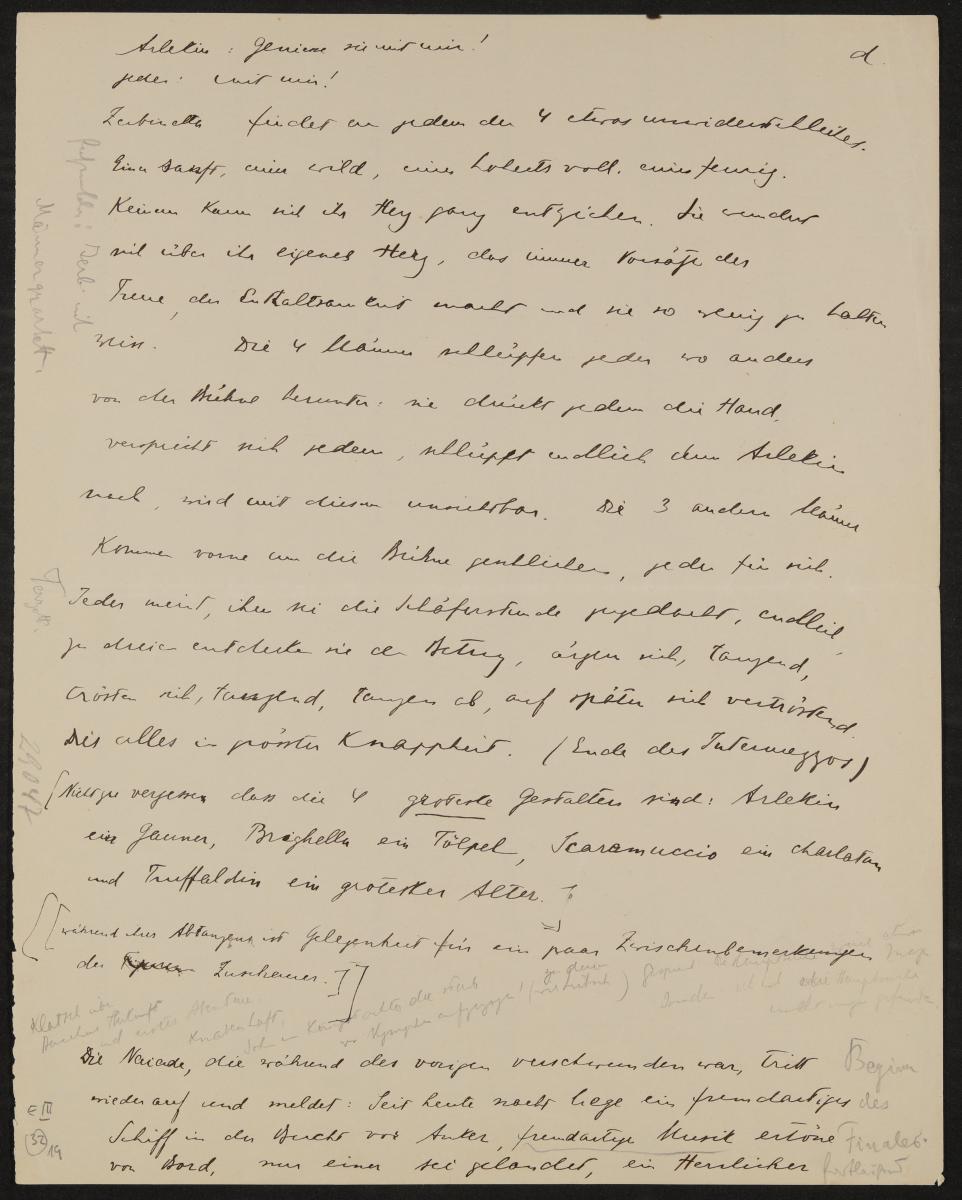 d.
Arlekin: Geniesse sie mit mir!
jeder: mit mir!
Zerbinetta findet an jedem der 4 etwas unwiderstehliches.
Einer sanft, einer wild, einer hoheitsvoll, einer feurig.
Keinem kann sich ihr Herz ganz entziehen. Sie wundert
sich über ihr eigenes Herz, das immer Vorsätze der
Treue, der Enthaltsamkeit macht und sie so wenig zu halten
weiss. Die 4 Männer schlüpfen jeder wo anders
von der Bühne herunter: sie drückt jedem die Hand,
verspricht sich jedem, schlüpft endlich dem Arlekin
nach, wird mit diesem unsichtbar. Die 3 andern Männer
kommen vorne um die Bühne geschlichen, jeder für sich.
Jeder meint, ihm sei die Schäferstunde zugedacht, endlich
zu dreien entdecken sie den Betrug, ärgern sich, tanzend,
trösten sich, tanzend, tanzen ab, auf später sich vertröstend.
Dies alles in grösster Knappheit. (Ende des Intermezzos)
(Nicht zu vergessen dass die 4 groteske Gestalten sind: Arlekin
ein Gauner, Brighella ein Tölpel, Scaramuccio ein Charlatan
und Truffaldin ein grotesker Alter.
[während ihres Abtanzens ist Gelegenheit für ein paar Zwischenbemerkungen
der Zuschauer.]
Klatsch über
Knabenhaft,
Die Najade, die während des vorigen verschwunden war, tritt
wieder auf und meldet: Seit heute nacht liege ein fremdartiges
Schiff in der Bucht vor Anker, fremdartige Musik ertöne
von Bord, nur einer sei gelandet, ein Herrlicher
Beginn
des
Finales.
Männerquartett.
Terzett.
29047
E III
(32) 19